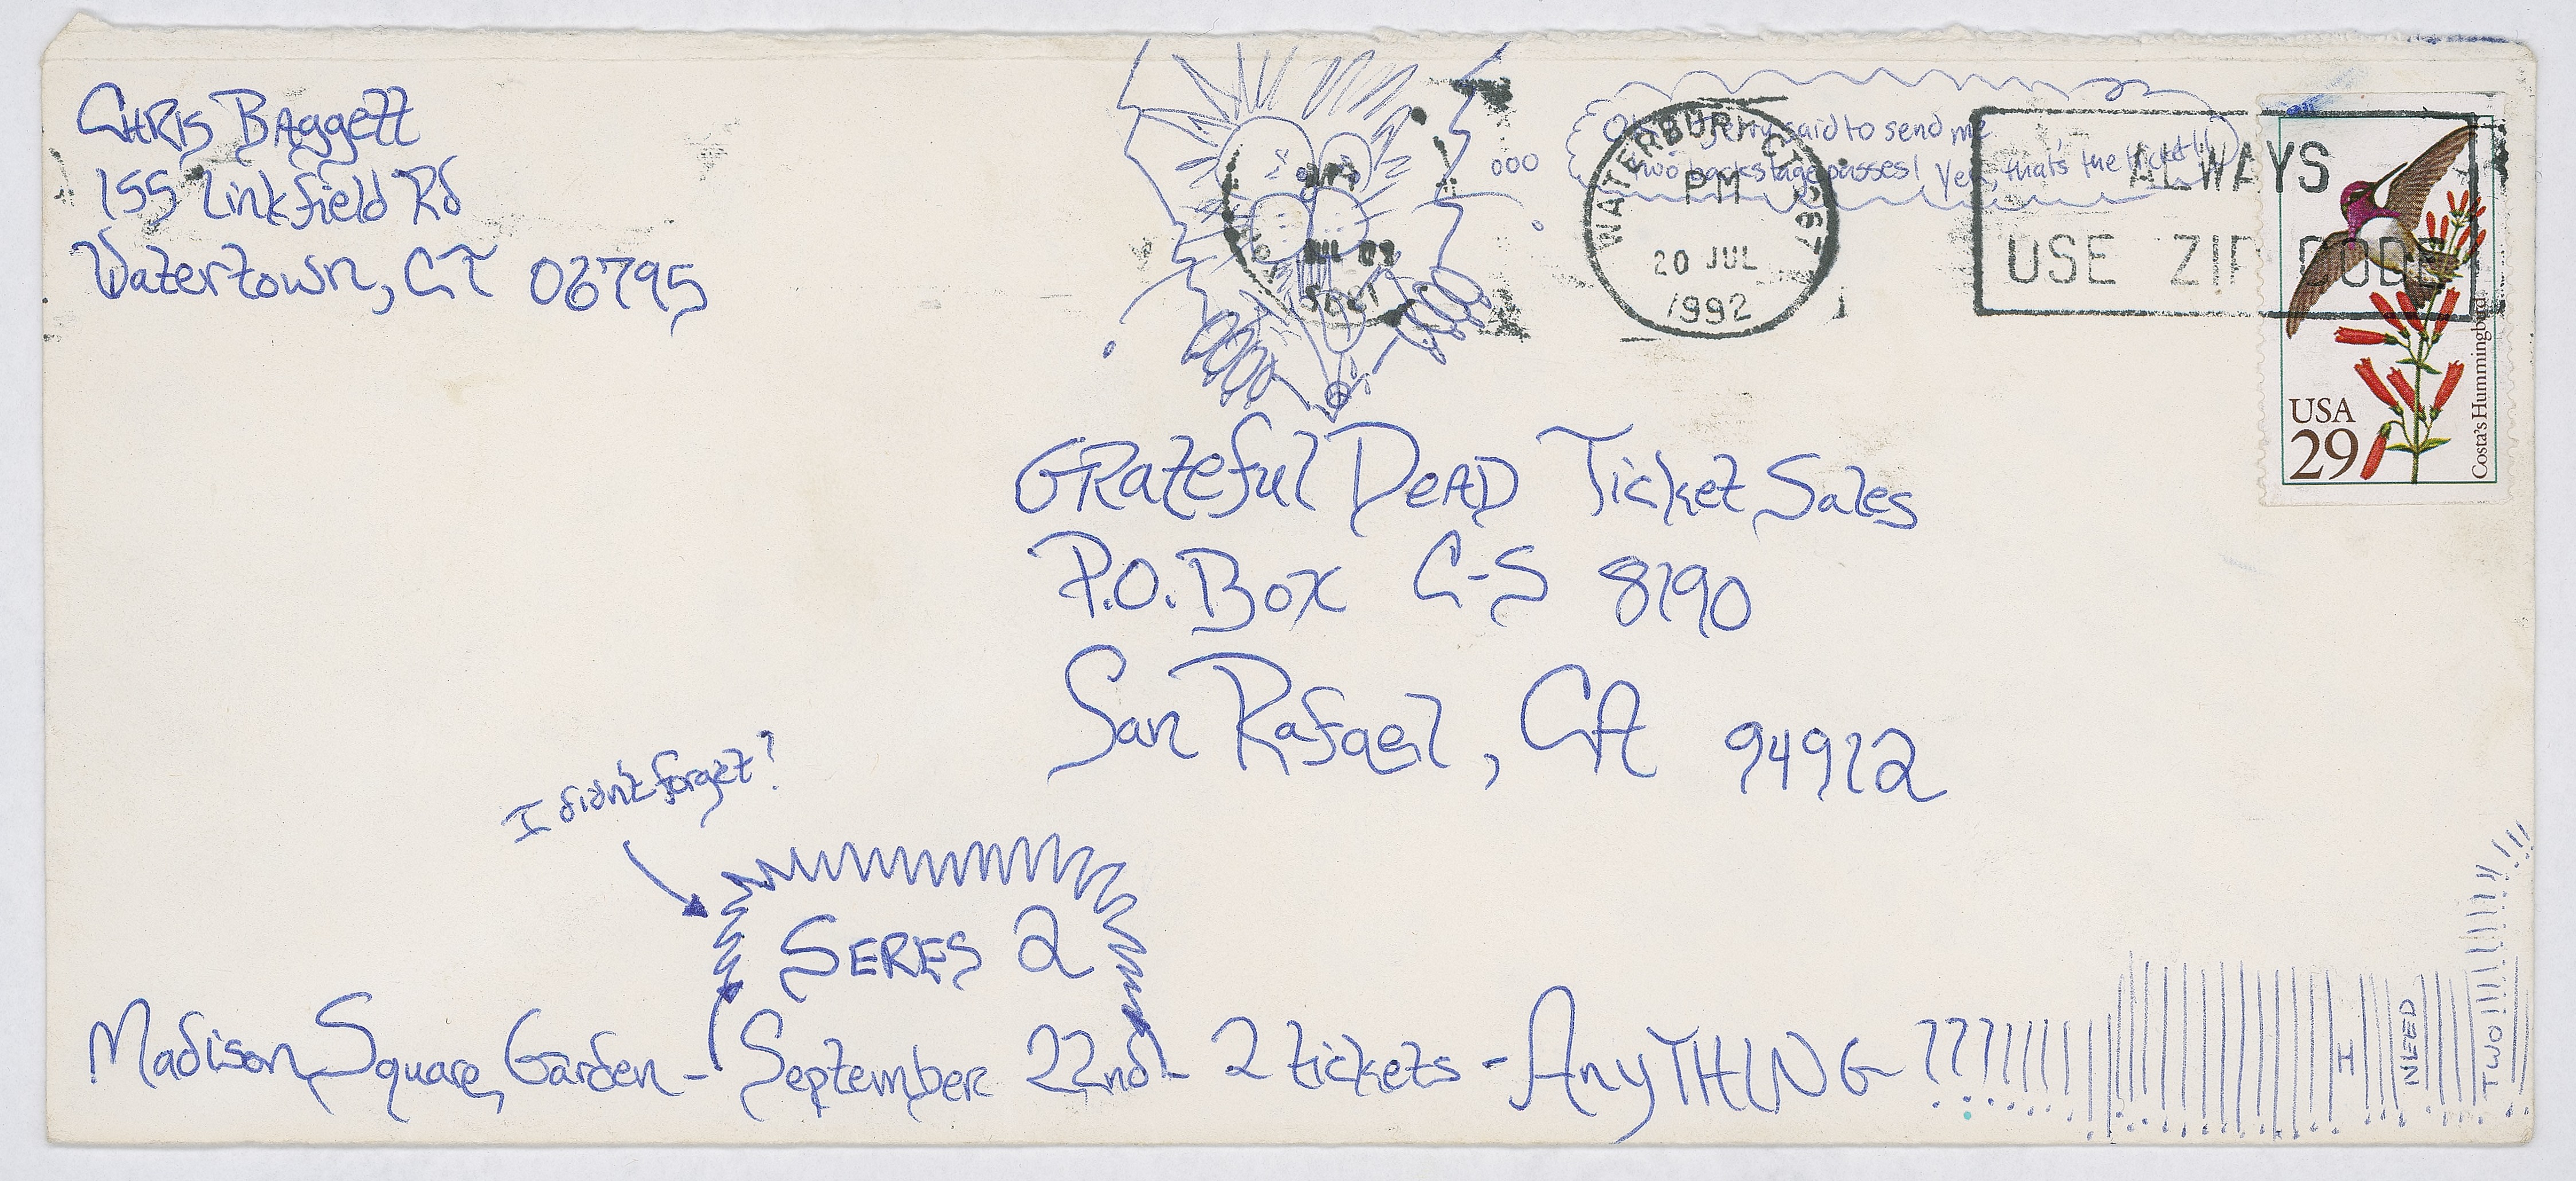 Chris Baggett
155 Linkfield Rd
Watertown, CT 06795
Jerry said to send me
two backstage passes! Yes, that's the ticket!!
WATERBURY, CT 067
PM
20 JUL
1992
ALWAYS
USE ZIP CODE
USA
29
Costa's Hummingbird
Grateful DeAD Ticket Sales
P.O. Box C-S 8190
San Rafael, CA 94912
I didn't forget?
SERES 2
Madison Square Garden - September 22nd - 2 tickets - AnyTHING ???!!!!!!!
I
NEED
TWO